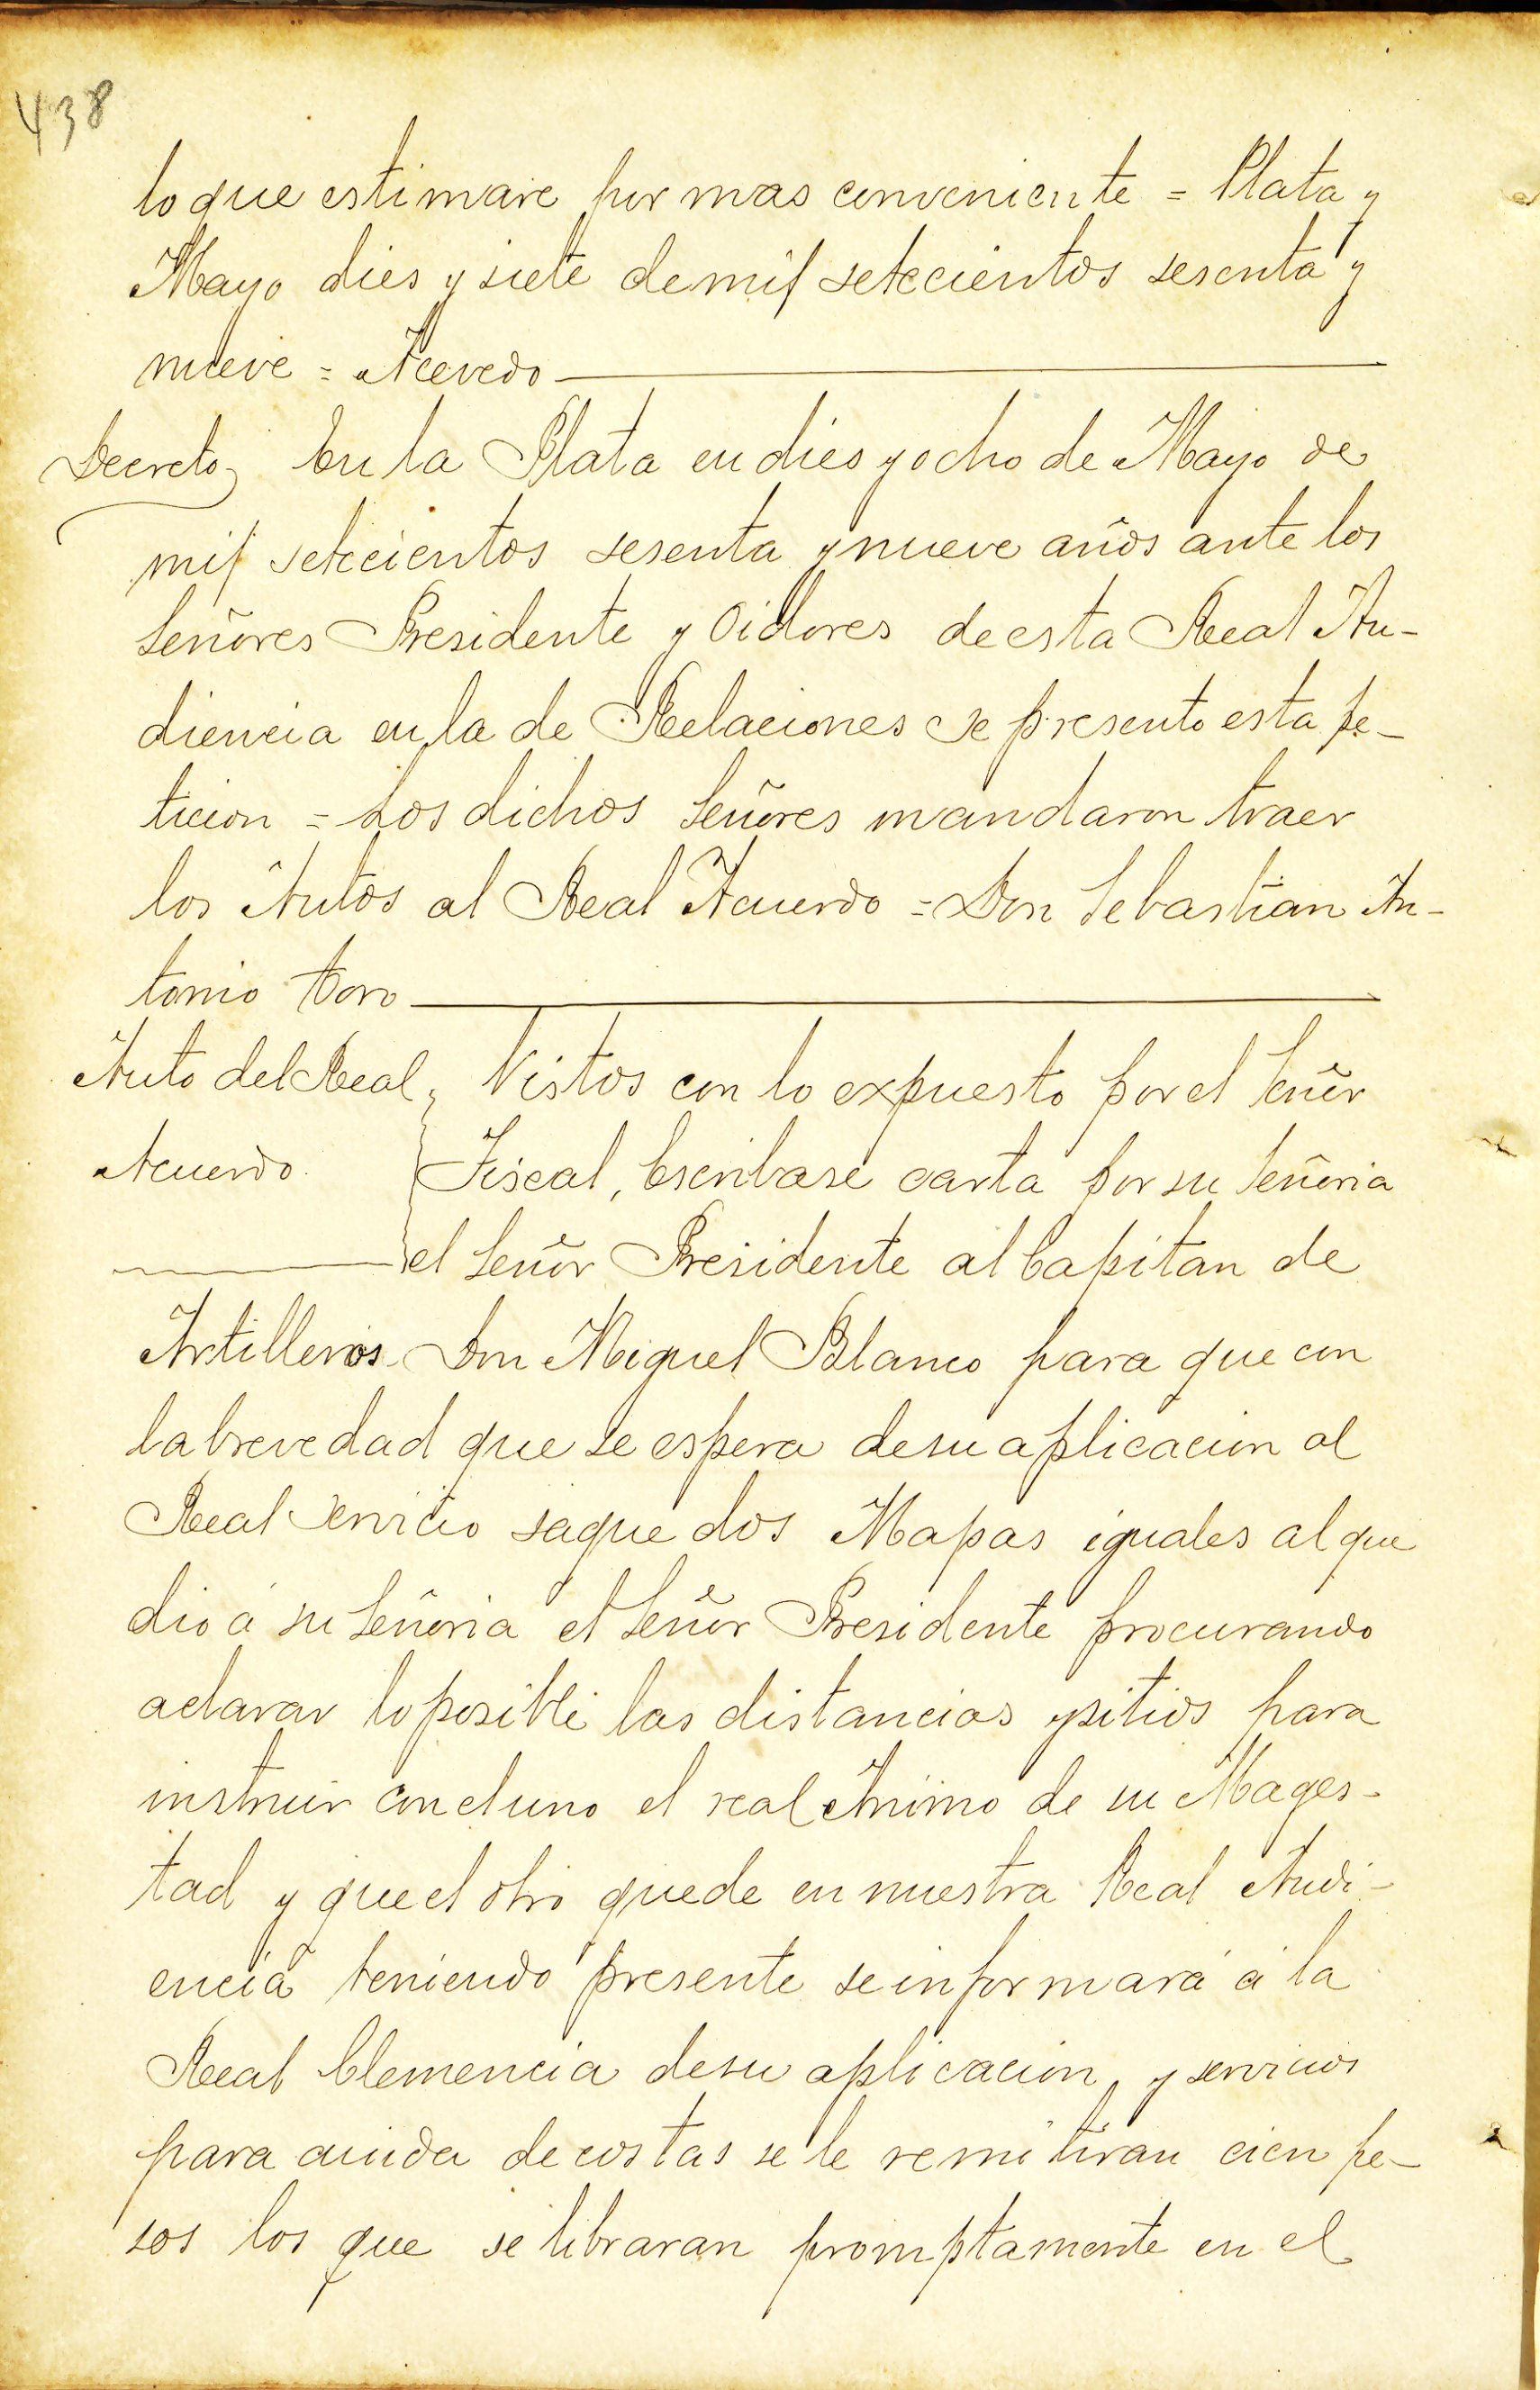 438
lo que estimare por mas conveniente = Plata y
Mayo dies y siete de mil setecientos sesenta y
nueve = Acevedo
Decreto En la Plata en dies y ocho de Mayo de
mil setecientos sesenta y nueve años ante los
Señores Presidente y Oidores de esta Real Au-
diencia en la de Relaciones se presento esta pe-
ticion = Los dichos Señores mandaron traer
los Autos al Real Acuerdo = Don Sebastian An-
tonio Toro
Auto del Real Vistos con lo expuesto por el Señor
Acuerdo Fiscal, Escribase carta por su Señoria
el Señor Presidente al Capitan de
Artilleros Don Miguel Blanco para que con
la brevedad que se espera de su aplicacion al
Real servicio saque dos Mapas iguales al que
dio á su Señoria el Señor Presidente procurando
aclarar lo posible las distancias y sitios para
instruir con el uno el real Animo de su Mages-
tad y que el otro quede en nuestra Real Audi-
encia teniendo presente se informará á la
Real Clemencia de su aplicacion y servicios
para aiuda de costas se le remitiran cien pe-
sos los que se libraran promptamente en el